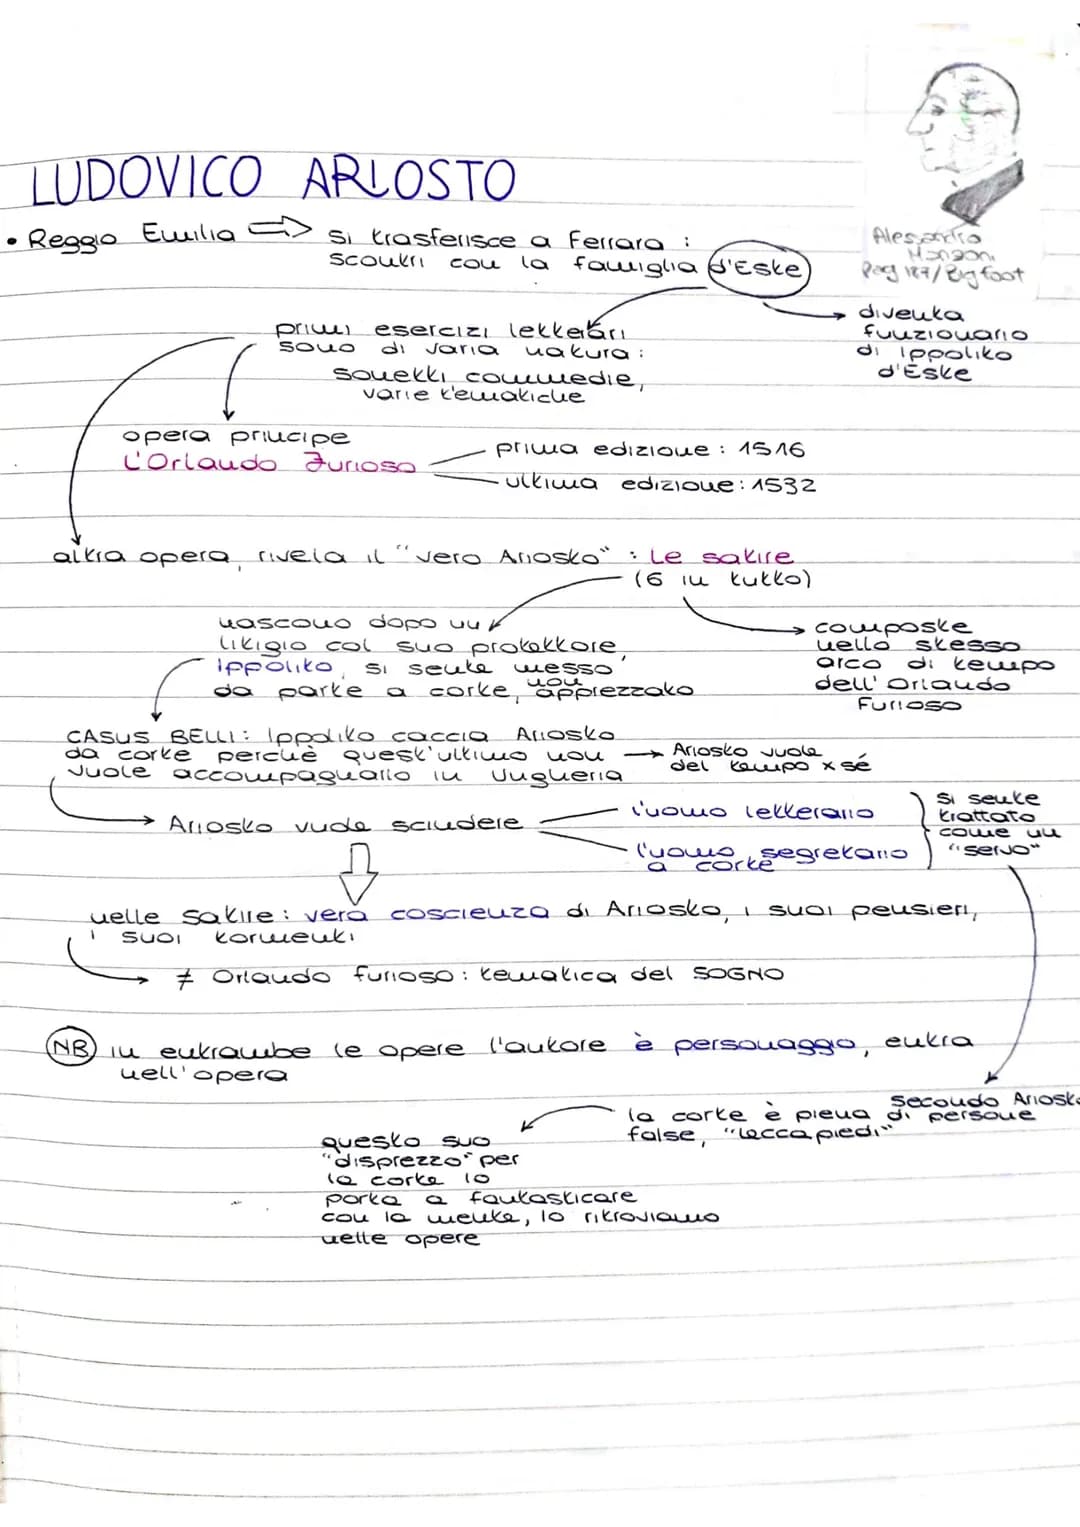 LUDOVICO ARIOSTO
Alessandro
Manzoni
Pag 187/Bigfoot
• Reggio Emilia ⇒ si trasferisce a Ferrara :
scontri con la famiglia d'Este
diventa
funzionario
di Ippolito
d'Este
primi esercizi letterari
sono di varia natura :
sonetti, commedie,
varie tematiche
opera principe
L'Orlando Furioso
prima edizione : 1516
ultima edizione : 1532
altra opera, rivela il "vero Ariosto" : Le satire
(6 in tutto)
nascono dopo un
litigio col suo protettore,
Ippolito, si sente messo
da parte a corte, non apprezzato
composte
nello stesso
arco di tempo
dell'Orlando
Furioso
CASUS BELLI : Ippolito caccia Ariosto
da corte perchè quest'ultimo non
vuole accompagnarlo in Ungheria
→ Ariosto vuole
del tempo x sé
Ariosto vuole scindere
l'uomo letterario
l'uomo segretario
a corte
si sente
trattato
come un
"servo"
nelle satire : vera coscienza di Ariosto, i suoi pensieri,
i suoi tormenti
≠ Orlando furioso : tematica del SOGNO
NB in entrambe le opere l'autore è personaggio, entra
nell'opera
secondo Ariosto
la corte è piena di persone
false, "leccapiedi"
questo suo
"disprezzo" per
la corte lo
porta a fantasticare
con la mente, lo ritroviamo
nelle opere